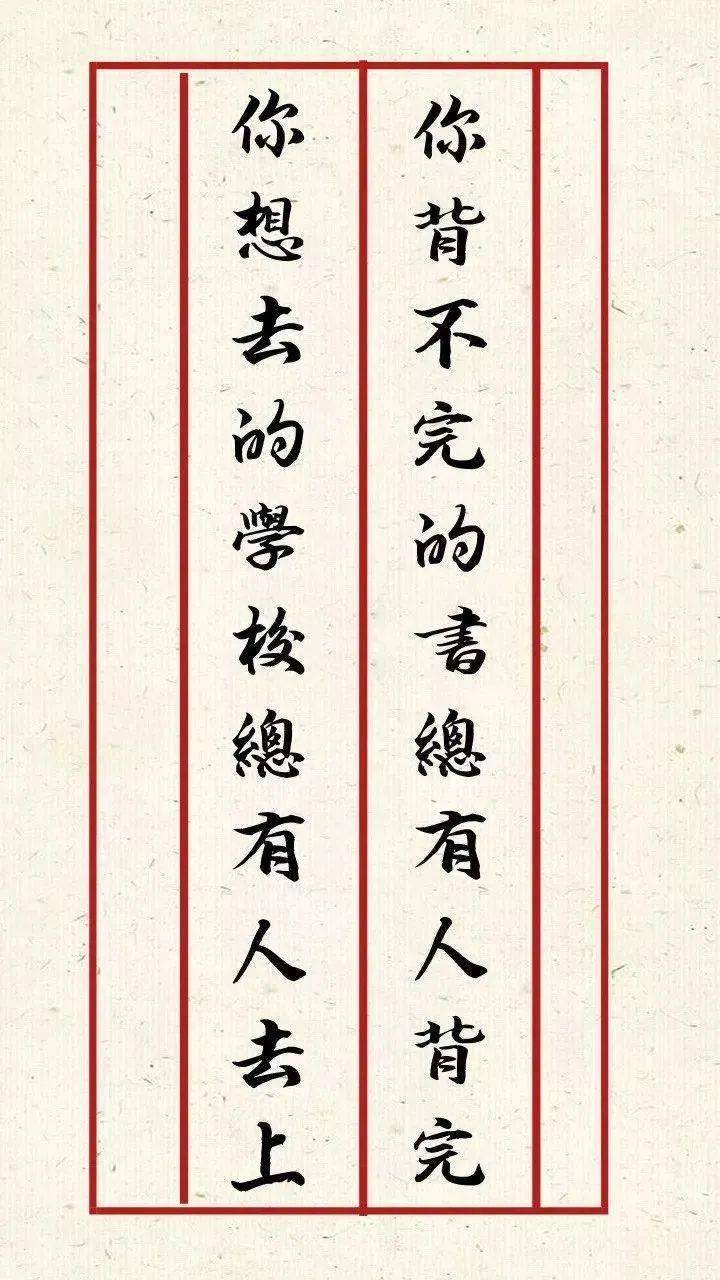 你背不完的書總有人背完
你想去的學校總有人去上